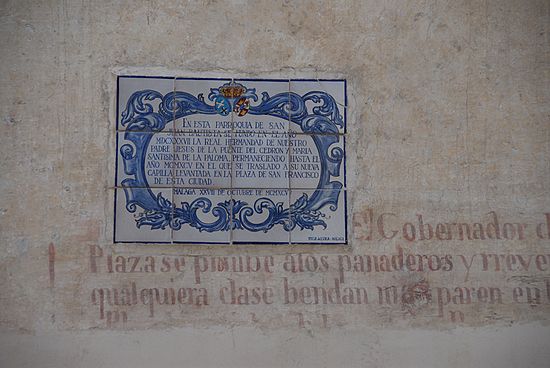 EN ESTA PARROQUIA DE SAN
JUAN BAUTISTA SE FUNDO EN EL AÑO
MDCXXXVII LA REAL HERMANDAD DE NUESTRO
PADRE JESUS DE LA PUENTE DEL CEDRON Y MARIA
SANTISIMA DE LA PALOMA, PERMANECIENDO HASTA EL
AÑO MCMXCV EN EL QUE SE TRASLADO A SU NUEVA
CAPILLA LEVANTADA EN LA PLAZA DE SAN FRANCISCO
DE ESTA CIUDAD.
MALAGA XXVII DE OCTUBRE DE MCMXCV
El Gobernador d
Plaza se prohibe a los panaderos y rreve
qualquiera clase bendan mas paren en